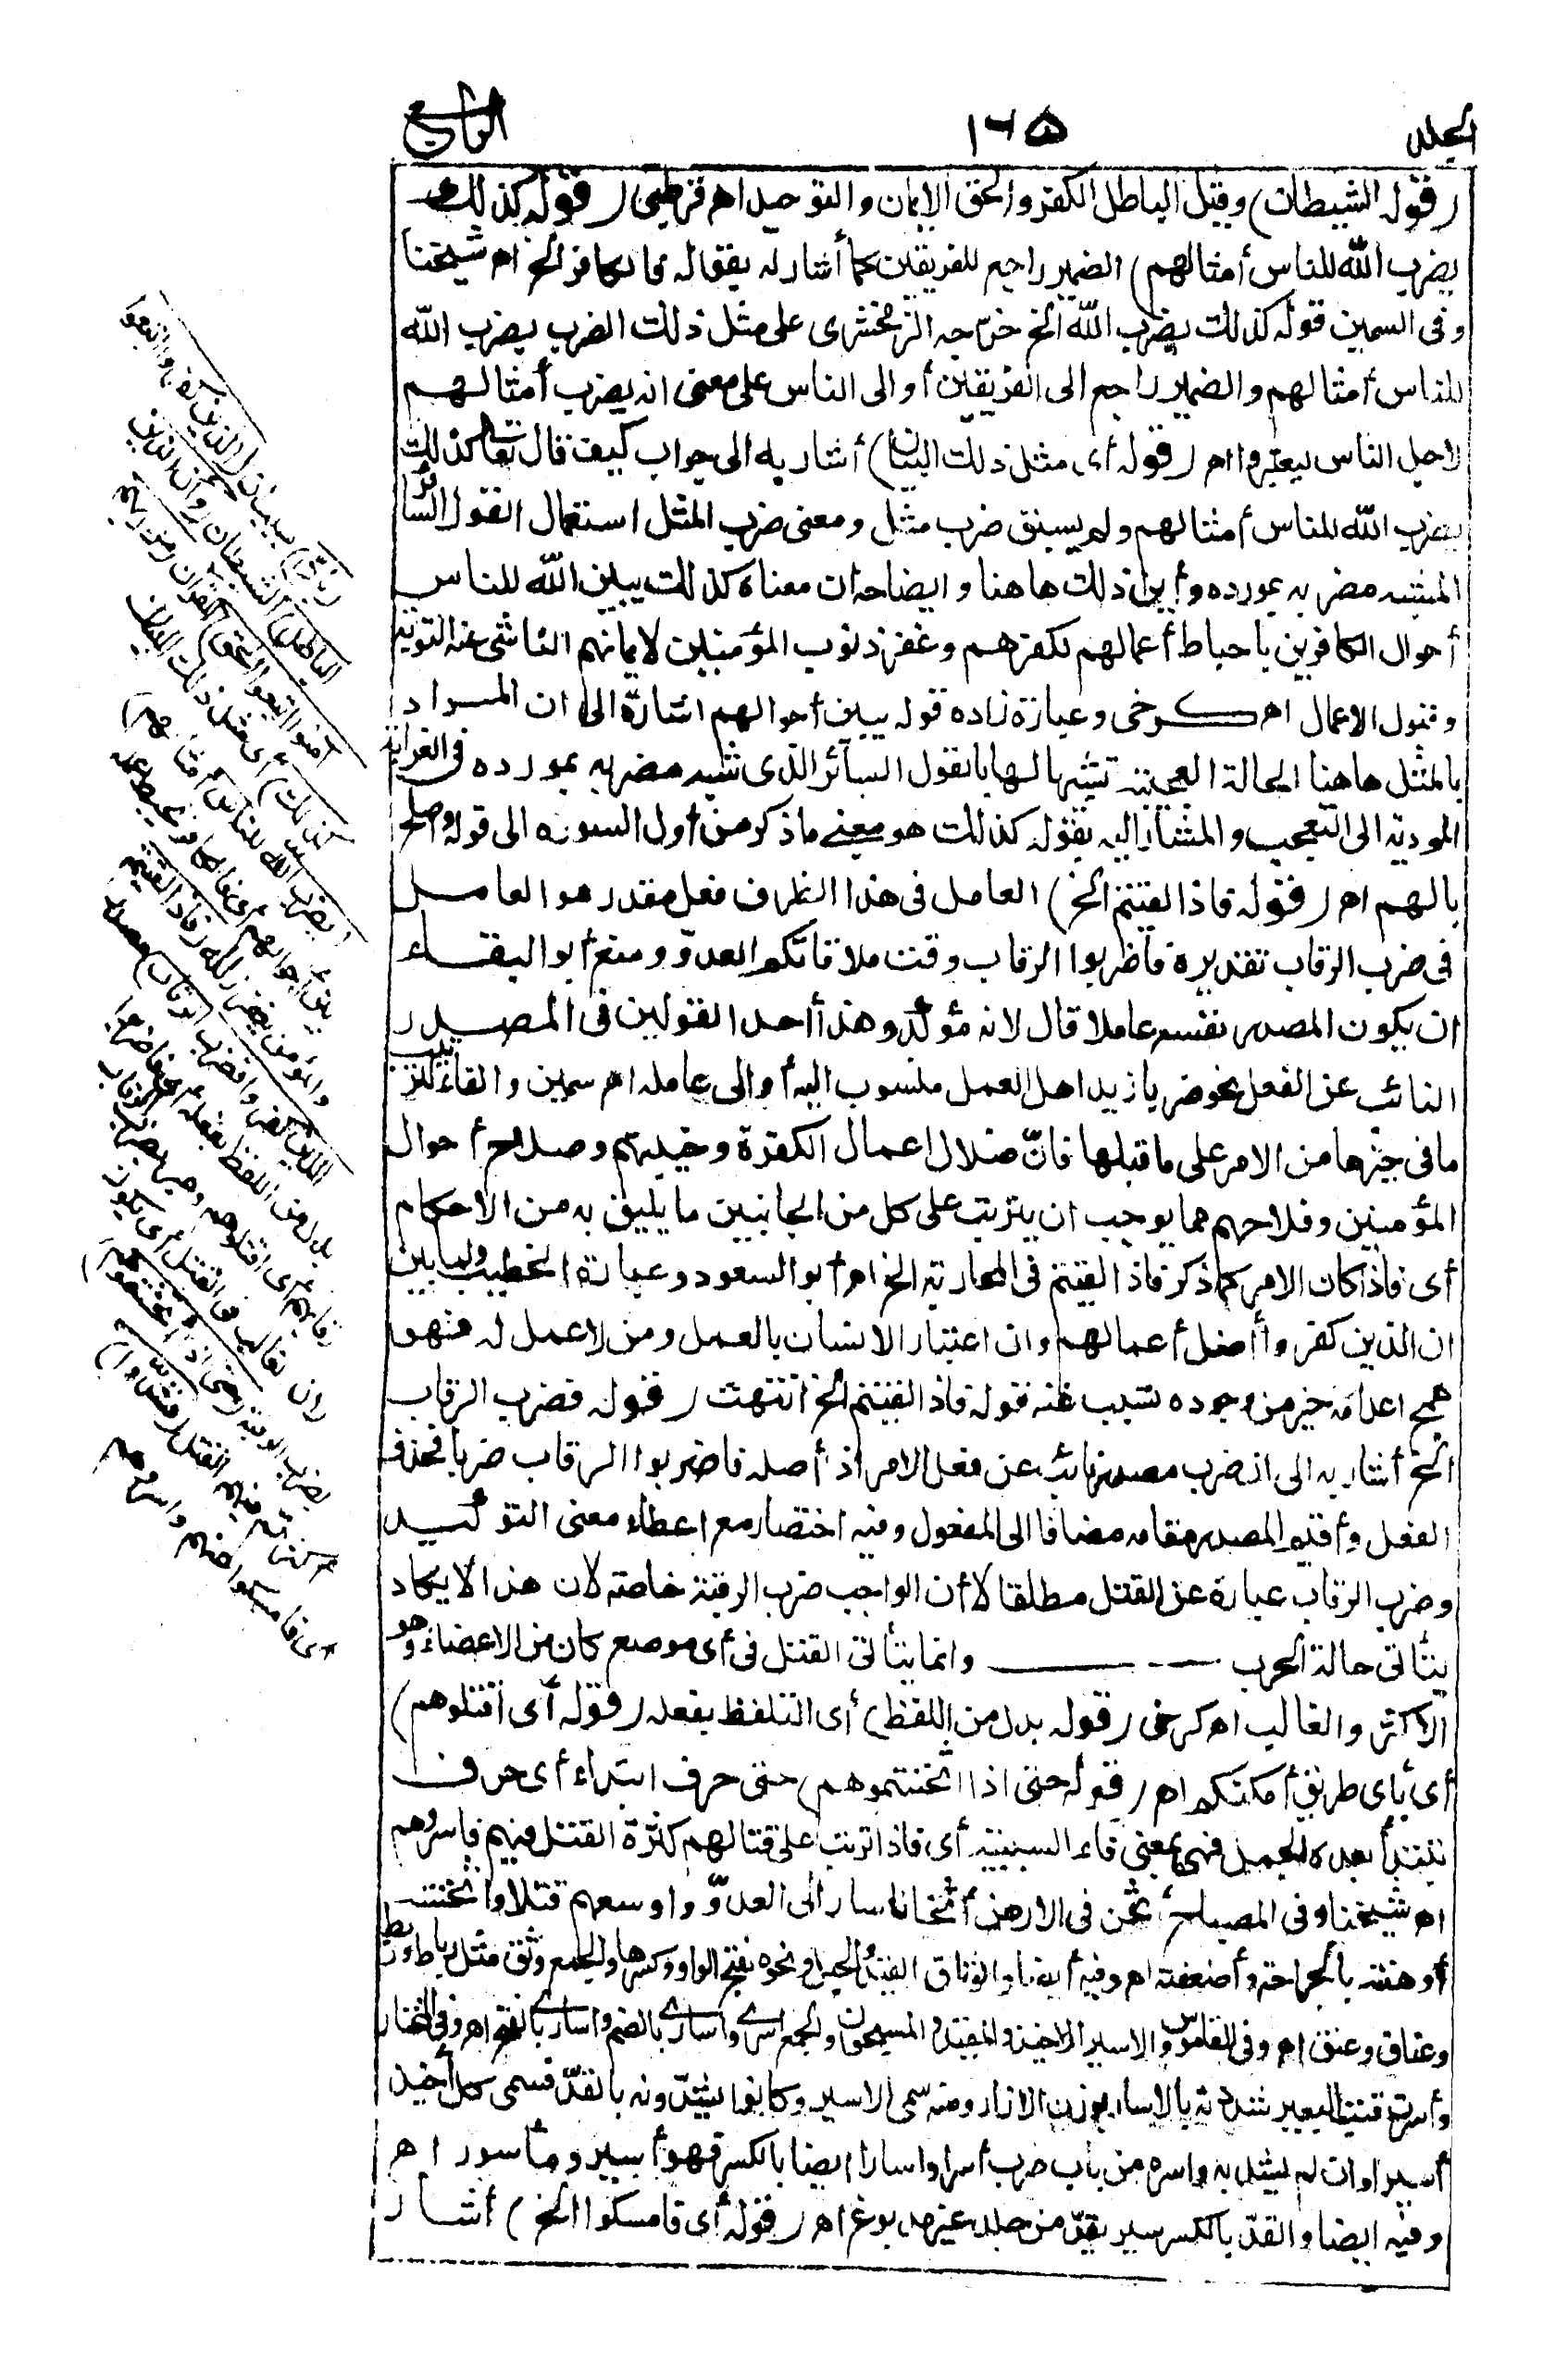 المجلد
١٦٥
الرابع
(قوله الشيطان) وقيل الباطل الكفر والحق الايمان والتوحيد اھ قرطبى (قوله كذلك
يضرب الله للناس أمثالهم) الضمير راجع للفريقين كما أشار له بقوله فالكافر الخ اھ شيخنا
وفى السمين قوله كذلك يضرب الله الخ خرّجه الزمخشرى على مثل ذلك الضرب يضرب الله
للناس أمثالهم والضمير راجع الى الفريقين أو الى الناس على معنى انه يضرب أمثالهم
لاجل الناس ليعتبروا اھ (قوله أى مثل ذلك البيان) أشار به الى جواب كيف قال تعالى كذلك
يضرب الله للناس أمثالهم ولم يسبق ضرب مثل ومعنى ضرب المثل استعمال القول السائر
المشبه مضربه بمورده وأين ذلك هاهنا وايضاحه ان معناه كذلك يبين الله للناس
أحوال الكافرين باحباط أعمالهم لكفرهم وغفر ذنوب المؤمنين لايمانهم الناشئ عنه التوبة
وقبول الاعمال اھ كرخى وعبارة زاده قوله يبين أحوالهم اشارة الى ان المراد
بالمثل هاهنا الحالة العجيبة تشبيها لها بالقول السائر الذى شبه مضربه بمورده فى الغرابة
المودية الى التعجب والمشار اليه بقوله كذلك هو معنى ما ذكر من أول السورة الى قوله وأصلح
بالهم اھ (قوله فاذا لقيتم الخ) العامل فى هذا الظرف فعل مقدر هو العامل
فى ضرب الرقاب تقديره فاضربوا الرقاب وقت ملاقاتكم العدوّ ومنع أبو البقاء
ان يكون المصدر نفسه عاملا قال لانه مؤكد وهذا أحد القولين فى المصدر
النائب عن الفعل نحو ضربا زيدا هل العمل منسوب اليه أو الى عامله اھ سمين والفاء لترتيب
ما فى حيزها من الامر على ما قبلها فانّ ضلال اعمال الكفرة وخيبتهم وصلاح أحوال
المؤمنين وفلاحهم مما يوجب ان يترتب على كل من الجانبين ما يليق به من الاحكام
أى فاذا كان الامر كما ذكر فاذا لقيتم فى المحاربة الخ اھ أبو السعود وعبارة الخطيب ولما بين
ان الذين كفروا أضل أعمالهم وان اعتبار الانسان بالعمل ومن لا عمل له فهو
همج اعدامه خير من وجوده تسبب عنه قوله فاذا لقيتم الخ انتهت (قوله فضرب الرقاب
الخ) أشار به الى ان ضرب مصدر نائب عن فعل الامر اذ أصله فاضربوا الرقاب ضربا فحذف
الفعل وأقيم المصدر مقامه مضافا الى المفعول وفيه اختصار مع اعطاء معنى التوكيد
وضرب الرقاب عبارة عن القتل مطلقا لا أن الواجب ضرب الرقبة خاصة لان هذا لا يكاد
يتأتى حالة الحرب وانما يتأتى القتل فى أى موضع كان من الاعضاء وهو
الاكثر والغالب اھ كرخى (قوله بدل من اللفظ) أى التلفظ بفعله (قوله أى اقتلوهم)
أى بأى طريق أمكنكم اھ (قوله حتى اذا اثخنتموهم) حتى حرف ابتداء أى حرف
تبتدأ بعده الجمل فهى بمعنى فاء السببية أى فاذا ترتب على قتالهم كثرة القتل فيهم فاسروهم
اھ شيخنا وفى المصباح أثخن فى الارض أثخانا سار الى العدوّ واوسعهم قتلا واثخنته
أوهنته بالجراحة وأضعفته اھ وفيه أيضا والوثاق القيد الحبل ونحوه بفتح الواو وكسرها والجمع وثق مثل رباط وربط
وعناق وعنق اھ وفى القاموس والاسير الاخيذ والمقيد والمسجون والجمع اسرى وأسارى بالضم وأسارى بالفتح اھ وفى المختار
وأسر قتب البعير شده بالاسار بوزن الازار ومنه سمى الاسير وكانوا يشدّونه بالقدّ فسمى كل أخيذ
أسيرا وان لم يشد به واسره من باب ضرب أسرا واسارا أيضا بالكسر فهو أسير ومأسور اھ
وفيه ايضا والقدّ بالكسر سير يقدّ من جلد غير مدبوغ اھ (قوله أى فامسكوا الخ) أشار
(بأنّ) بسبب ان (الذين كفروا اتبعوا
الباطل) الشيطان (وأن الذين
آمنوا اتبعوا الحق) القرآن (من ربهم
كذلك) أى مثل ذلك البيان
(يضرب الله للناس أمثالهم)
يبين أحوالهم أى فالكافر يحبط عمله
والمؤمن يغفر زلله (فاذا لقيتم
الذين كفروا فضرب الرقاب) مصدر
بدل من اللفظ بفعله أى فاضربوا
رقابهم أى اقتلوهم وعبر بضرب الرقاب
لان الغالب فى القتل أى يكون
بضرب الرقبة (حتى اذا أثخنتموهم)
أكثرتم فيهم القتل (فشدّوا)
أى فامسكوا عنهم واسروهم